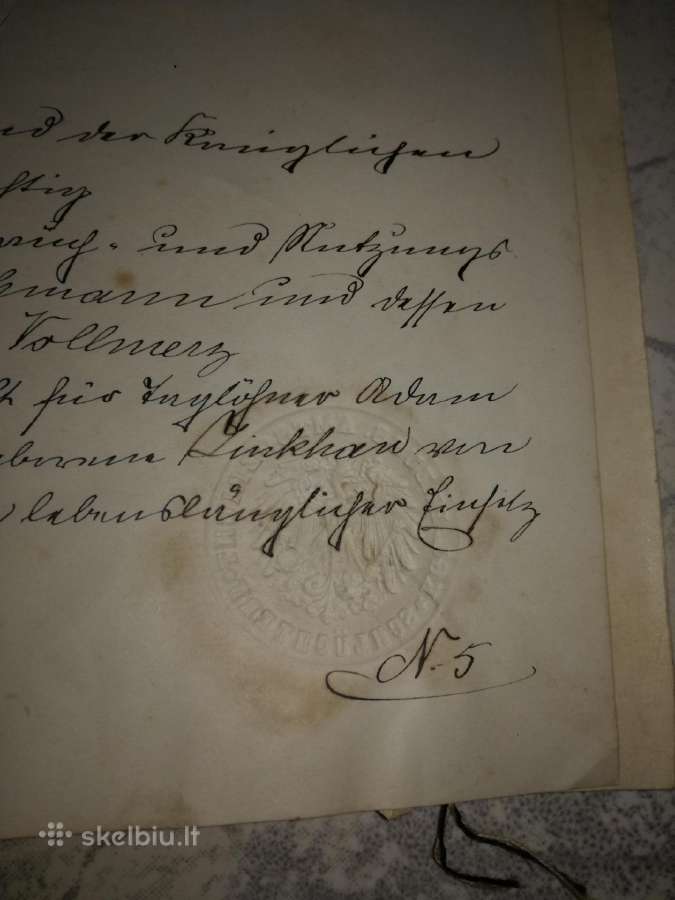 und der Königlichen
htig
uch- und Nutzungs
hmann und dessen
Vollmerz
für Taglöhner Adam
eborene Linkhau von
lebenslänglicher Einsitz
N. 5
skelbiu.lt